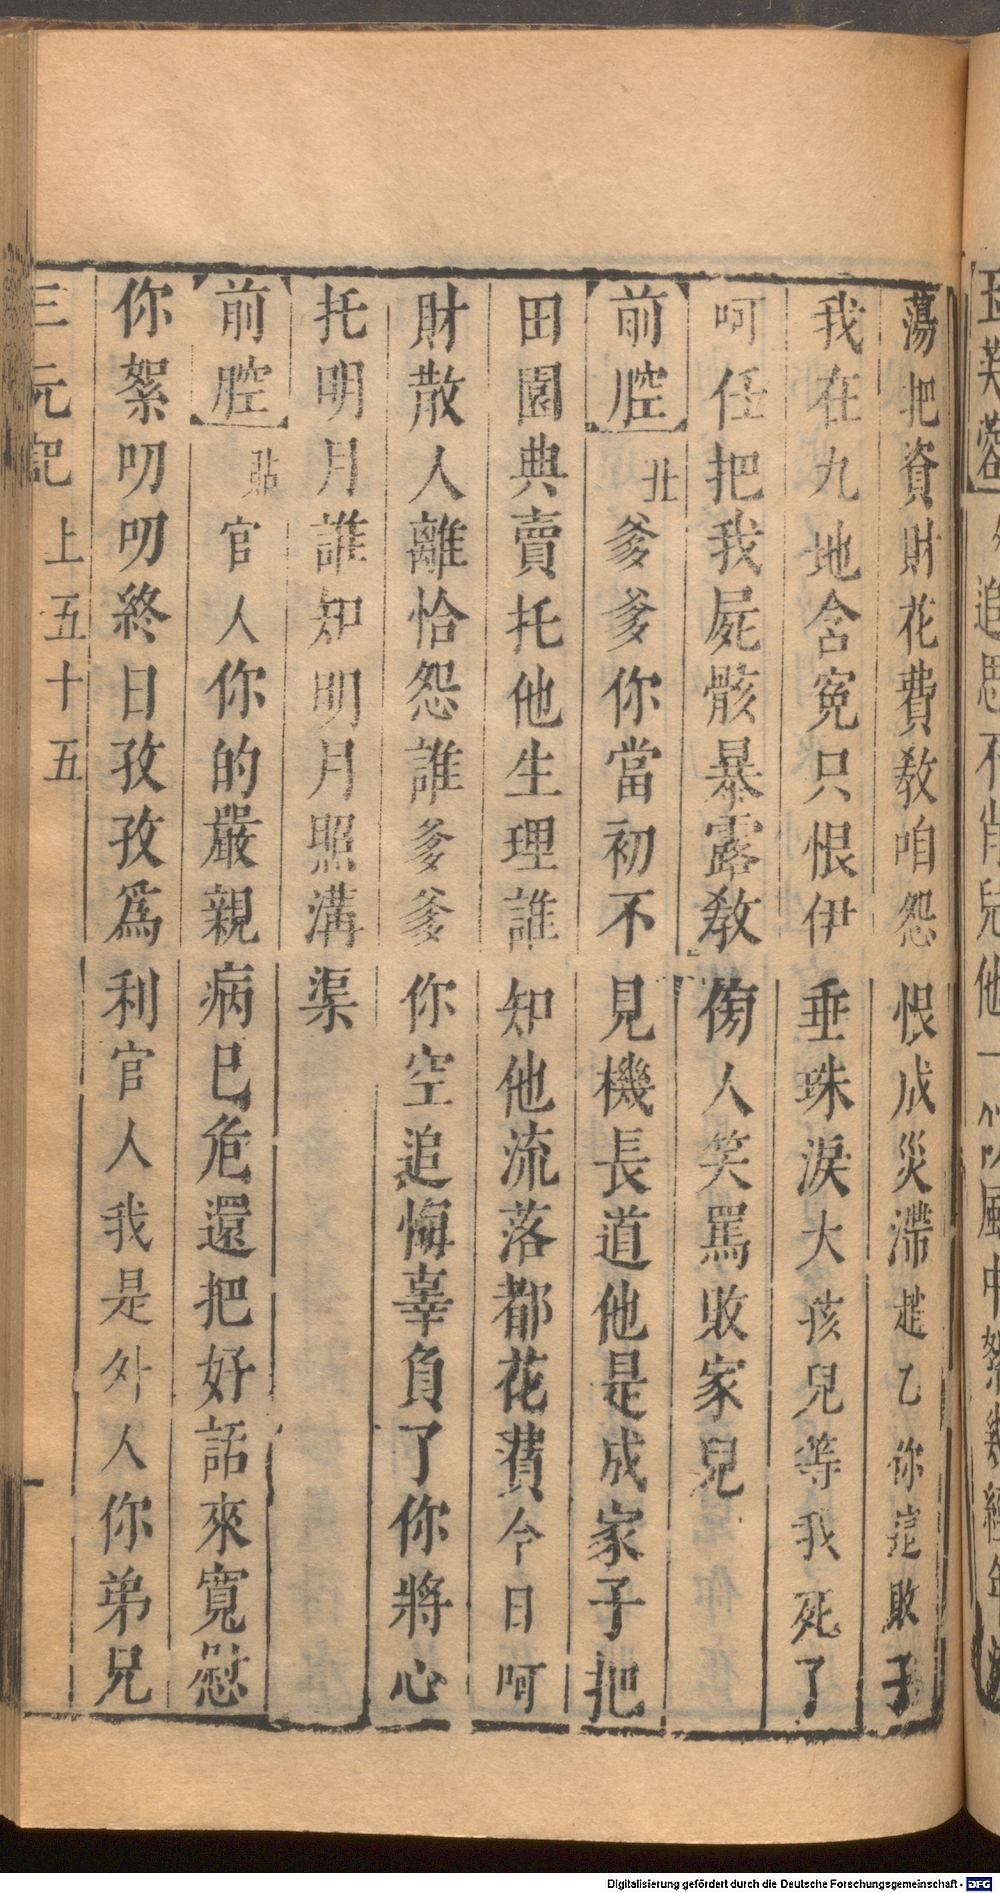 玉芙蓉
追思不肖兒他一
風中
蕩把資財花費教咱怨恨成災滯趕乙你這敗子
我在九地含寃只恨伊垂珠淚大孩兒等我死了
呵任把我屍骸暴露教傍人笑罵敗家兒
前腔 北爹爹你當初不見機長道他是成家子把
田園典賣托他生理誰知他流落都花費今日呵
財散人離恰怨誰爹爹你空追悔辜負了你將心
托明月誰知明月照溝渠
前腔 貼官人你的嚴親病已危還把好話來寬慰
你絮叨叨終日孜孜爲利官人我是外人你弟兄
三元記 上 五十五
Digitalisierung gefördert durch die Deutsche Forschungsgemeinschaft - DFG